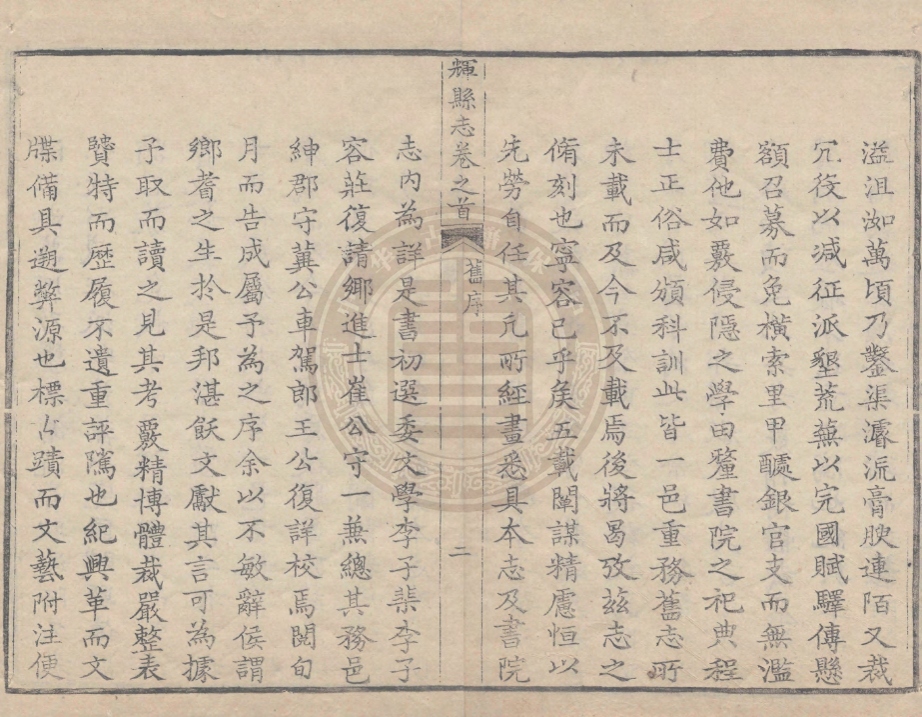 溢沮洳萬頃乃鑿渠濬流膏腴連陌又裁
冗役以减征派墾荒蕪以完國賦驛傳懸
額召募而免橫索里甲醵銀官支而無濫
費他如覈侵隱之學田釐書院之祀典程
士正俗咸頒科訓此皆一邑重務舊志所
未載而及今不及載焉後將曷攷兹志之
脩刻也寧容已乎矦五載闡謀精慮恒以
先勞自任其凡所經畫悉具本志及書院
輝縣志卷之首
舊序
二
志内為詳是書初選委文學李子棐李子
容莊復請鄉進士崔公守一兼總其務邑
紳郡守冀公車駕郎王公復詳校焉閱旬
月而告成屬予為之序余以不敏辭侯謂
鄉耆之生扵是邦湛飫文獻其言可為據
予取而讀之見其考覈精博體裁嚴整表
贒特而歷履不遺重評隲也紀興革而文
牒備具遡弊源也標古蹟而文藝附注便